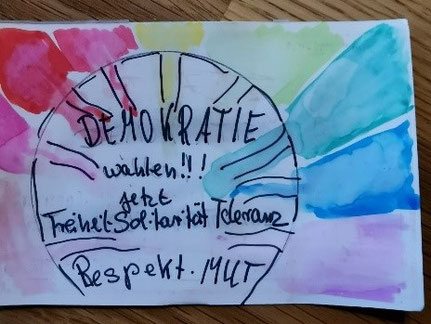 DEMOKRATIE
wählen!!!
jetzt
Freiheit·Solidarität Toleranz
Respekt·MUT